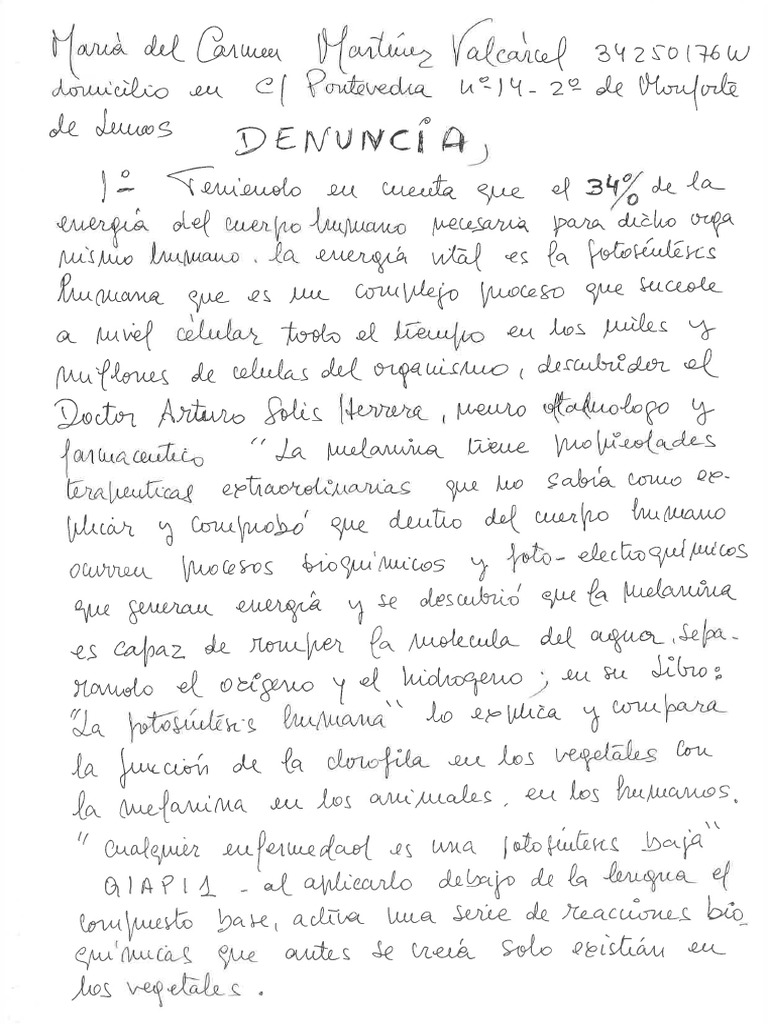 María del Carmen Martínez Valcárcel 34250176W
domicilio en C/ Pontevedra nº 14 - 2º de Monforte
de Lemos
DENUNCIA,
1º- Teniendo en cuenta que el 34% de la
energía del cuerpo humano necesaria para dicho orga
nismo humano. la energía vital es la fotosíntesis
humana que es un complejo proceso que sucede
a nivel célular todo el tiempo en los miles y
millones de celulas del organismo, descubridor el
Doctor Arturo Solis Herrera, neuro oftalmologo y
farmaceutico "La melanina tiene propiedades
terapeuticas extraordinarias que no sabía como ex-
plicar y comprobó que dentro del cuerpo humano
ocurren procesos bioquímicos y foto-electroquímicos
que generan energía y se descubrió que la melanina
es capaz de romper la molecula del agua, sepa-
rando el oxígeno y el hidrogeno; en su Libro:
"La fotosíntesis humana" lo explica y compara
la función de la clorofila en los vegetales con
la melanina en los animales, en los humanos.
"Cualquier enfermedad es una fotosíntesis baja"
QIAPI 1 - al aplicarlo debajo de la lengua el
compuesto base, activa una serie de reacciones bio-
químicas que antes se creía solo existían en
los vegetales.